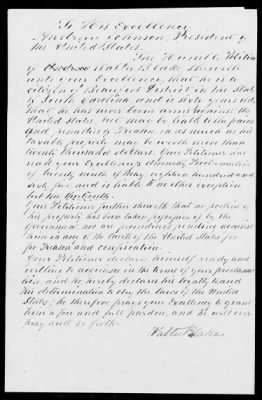 To His Excellency
Andrew Johnson, President of
the United States.
The Humble Petition
of Walter Blake sheweth
unto your Excellency that he is a
citizen of Beaufort District, in the State
of South Carolina and is sixty years old,
that he has not borne arms against the
United States, but may be liable to the pains
and penalties of Treason in as much as his
taxable property may be worth more than
twenty thousand dollars. Your Petitioner has
read your Excellency's Amnesty Proclamation
of twenty ninth of May, eighteen hundred and
sixty five, and is liable to no other exception
but the thirteenth.
Your Petitioner further sheweth that no portion of
his property has been taken possession of by the
government nor are proceedings pending against
him in any of the Courts of the United States for
for Treason and confiscation.
Your Petitioner declares himself ready and
willing to acquiesce in the terms of your proclama
tion and he hereby declares his loyalty and
his determination to obey the laws of the United
States; he therefore prays your Excellency to grant
him a free and full pardon, and he will ever
pray and so forth.
Walter Blake